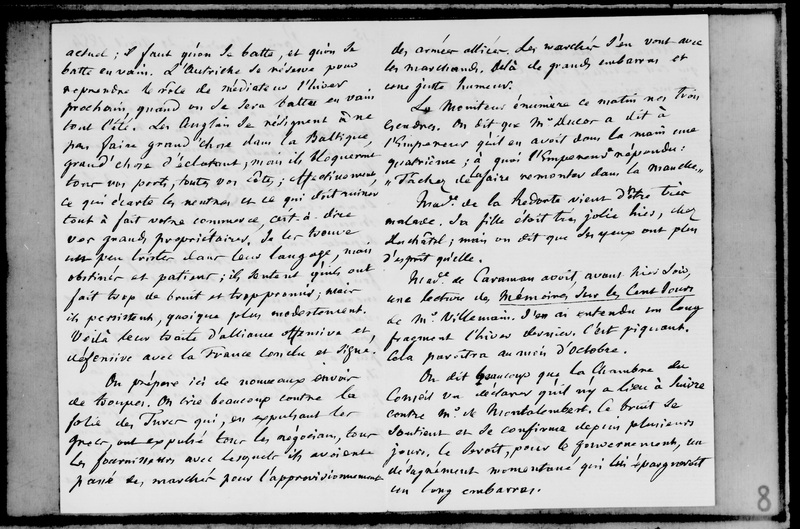 actuel ; il faut qu'on se batte, et qu'on se
batte en vain. L'Autriche se réserve pour
reprendre le rôle de médiateur l'hiver
prochain, quand on se sera battu en vain
tout l'été. Les Anglais se résignent à ne
pas faire grand'chose dans la Baltique,
grand'chose d'éclatant, mais ils bloqueront
tous vos ports, toutes vos côtes ; effectivement,
ce qui écarte les neutres et ce qui doit ruiner
tout à fait votre commerce, c'est-à-dire
vos grands propriétaires. Je les trouve
un peu tristes dans leur langage, mais
obstinés et patients ; ils sentent qu'ils ont
fait trop de bruit et trop promis ; mais
ils persistent, quoique plus modestement.
Voilà leur traité d'alliance offensive et
défensive avec la France conclu et signé.
On prépare ici de nouveaux envois
de troupes. On crie beaucoup contre la
folie des Turcs qui, en expulsant les
grecs, ont expulsé tous les négociants, tous
les fournisseurs avec lesquels ils avoient
passé des marchés pour l'approvisionnement
des armées alliées. Les marchés s'en vont avec
les marchands. Delà de grands embarras et
une juste humeur.
Le Moniteur énumère ce matin nos trois
escadres. On dit que Mr. Ducos a dit à
l'Empereur qu'il en avoit dans la main une
quatrième ; à quoi l'Empereur répondu :
"Tachez de la faire remonter dans la manche."
Made. de la Redorte vient d'être très
malade. Sa fille était très jolie hier, chez
Duchâtel ; mais on dit que ses yeux ont plus
d'esprit qu'elle.
Made. de Caraman avoit, avant hier soir,
une lecture des Mémoires sur les Cent Jours
de Mr. Villemain. J'en ai entendu un long
fragment l'hiver dernier. C'est piquant.
Cela paroîtra au mois d'Octobre.
On dit beaucoup que la Chambre du
Conseil va déclarer qu'il n'y a lieu à suivre
contre Mr. de Montalembert. Ce bruit se
soutient et se confirme depuis plusieurs
jours. Ce seroit, pour le gouvernement, un
désagrément momentané qui lui épargneroit
un long embarras.
8